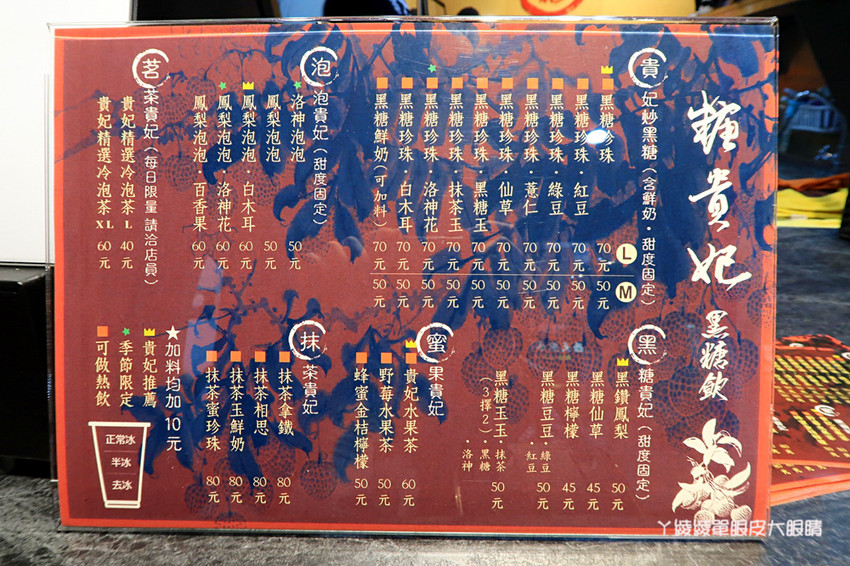 糖貴妃 黑糖飲
貴妃炒黑糖（含鮮奶・甜度固定）
L
M
黑糖珍珠 70元 50元
黑糖珍珠・紅豆 70元 50元
黑糖珍珠・綠豆 70元 50元
黑糖珍珠・薏仁 70元 50元
黑糖珍珠・仙草 70元 50元
黑糖珍珠・黑糖玉 70元 50元
黑糖珍珠・抹茶玉 70元 50元
黑糖珍珠・洛神花 70元 50元
黑糖珍珠・白木耳 70元 50元
黑糖鮮奶(可加料) 70元 50元
泡 泡貴妃（甜度固定）
洛神泡泡 50元
鳳梨泡泡 50元
鳳梨泡泡・白木耳 60元
鳳梨泡泡・洛神花 60元
鳳梨泡泡・百香果 60元
茗 茶貴妃（每日限量 請洽店員）
貴妃精選冷泡茶L 40元
貴妃精選冷泡茶XL 60元
黑 糖貴妃（甜度固定）
黑鑽鳳梨 50元
黑糖仙草 45元
黑糖檸檬 45元
黑糖豆豆・綠豆・紅豆 50元
黑糖玉玉・抹茶・黑糖・洛神 50元
(3擇2)
蜜 果貴妃
貴妃水果茶 60元
野莓水果茶 50元
蜂蜜金桔檸檬 50元
抹 茶貴妃
抹茶拿鐵 80元
抹茶相思 80元
抹茶玉鮮奶 80元
抹茶蜜珍珠 80元
★加料均加10元
貴妃推薦
季節限定
可做熱飲
正常冰
半冰
去冰
ㄚ綾綾單眼皮大眼睛